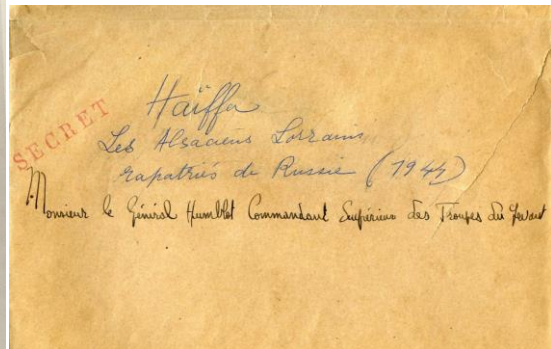 SECRET
Haïffa
Les Alsaciens Lorrains
rapatriés de Russie (1944)
Monsieur le Général Humblot Commandant Supérieur des Troupes du Levant